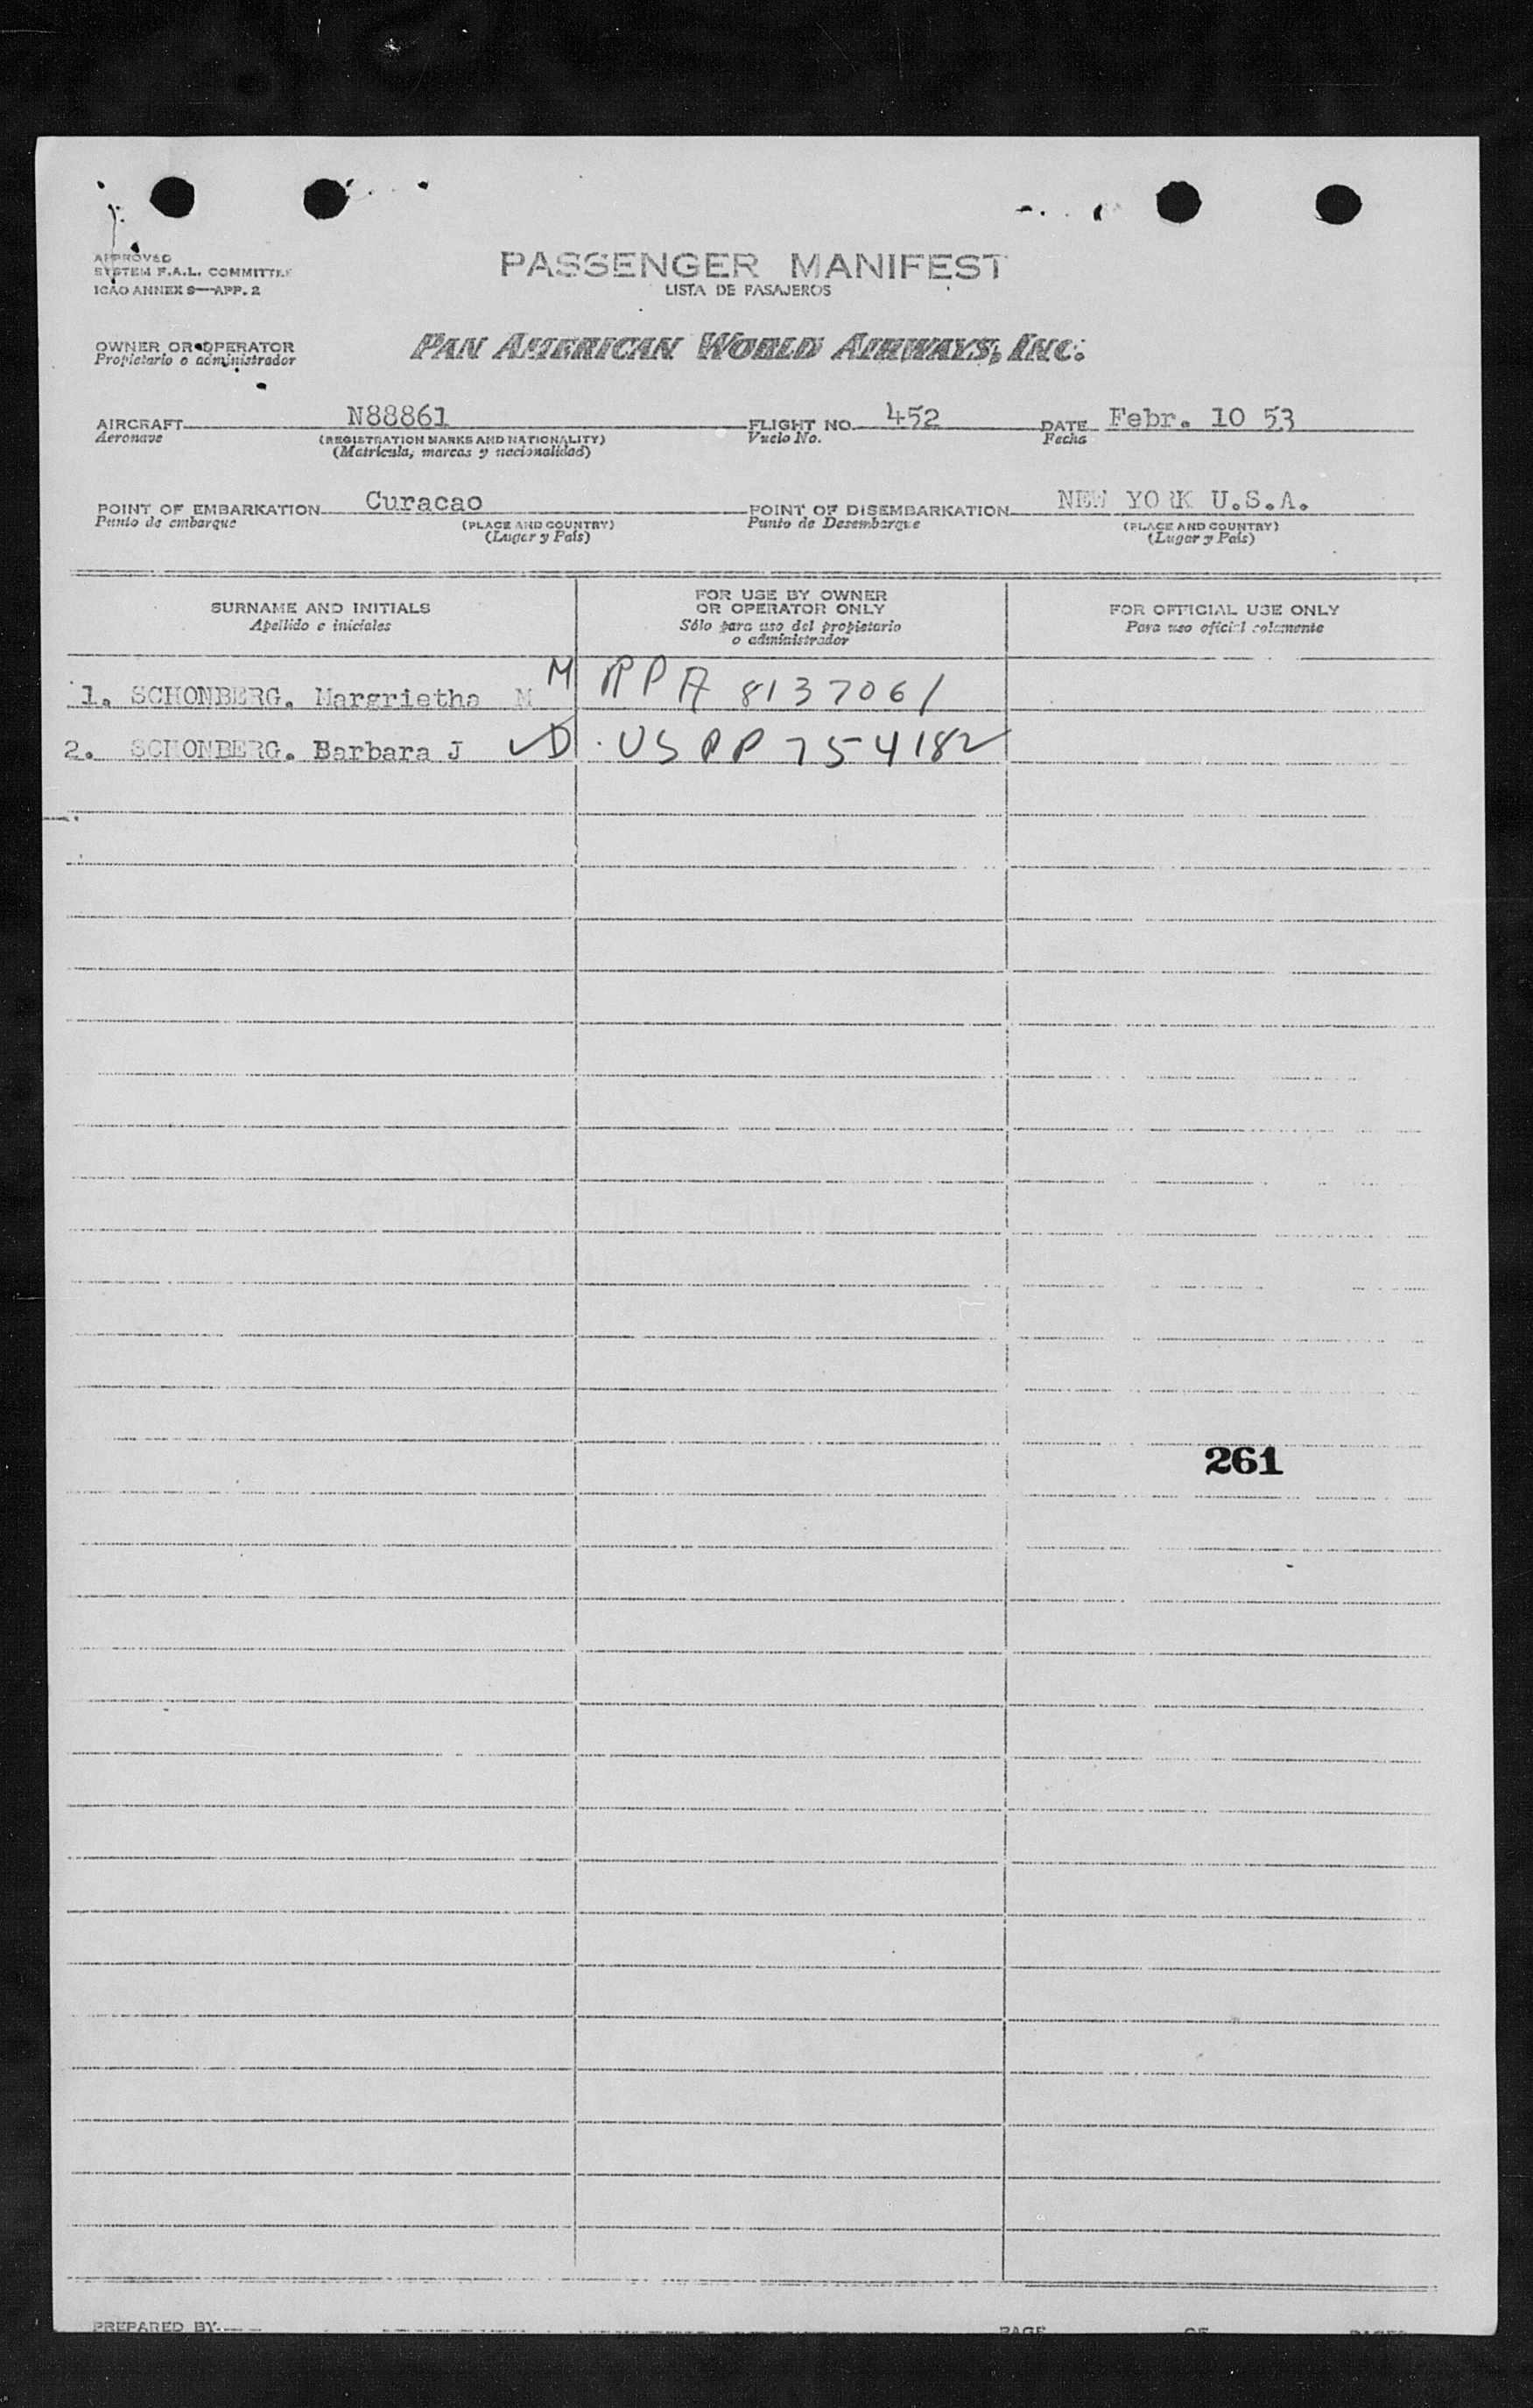 APPROVED
SYSTEM F.A.L. COMMITTEE
ICAO ANNEX 9—APP. 2
PASSENGER MANIFEST
LISTA DE PASAJEROS
OWNER OR OPERATOR
Propietario o administrador
PAN AMERICAN WORLD AIRWAYS, INC.
AIRCRAFT N88861 FLIGHT NO. 452 DATE Febr. 10 53
Aeronave (REGISTRATION MARKS AND NATIONALITY) Vuelo No. Fecha
(Matricula, marcas y nacionalidad)
POINT OF EMBARKATION Curacao POINT OF DISEMBARKATION NEW YORK U.S.A.
Punto de embarque (PLACE AND COUNTRY) Punto de Desembarque (PLACE AND COUNTRY)
(Lugar y País) (Lugar y País)
SURNAME AND INITIALS
Apellido e iniciales
FOR USE BY OWNER
OR OPERATOR ONLY
Sólo para uso del propietario
o administrador
FOR OFFICIAL USE ONLY
Para uso oficial solamente
1. SCHONBERG. Margrietha M M RPA 8137061
2. SCHONBERG. Barbara J ✓D USPP 754182
261
PREPARED BY PAGE OF PAGES